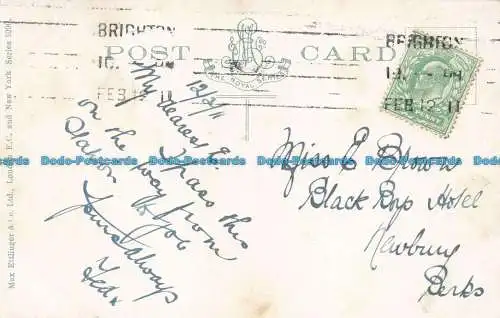 BRIGHTON
FEB 12 11
BRIGHTON
FEB 12 11
POST CARD
THE ROYAL SERIES
Max Ettlinger & Co. Ltd., London E.C., and New York Series
12/2/11
My dearest E.
I pass this
on the way from
Station to you
Yours always
Ted.
Miss E Brown
Black Boy Hotel
Newbury
Berks
Dodo-Postcards Dodo-Postcards Dodo-Postcards Dodo-Postcards Dodo-Postcards